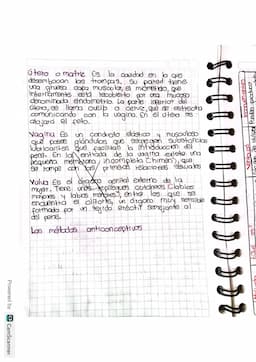 Útero o matriz Es la cavidad en la que
desembocan las trompas. Su pared tiene
una gruesa capa muscular, el miometrio, que
interiormente está recubierto por una mucosa
denominada endometrio. La parte inferior del
útero, se llama cuello o cérvix, que se estrecha
comunicando con la vagina. En el útero se
alojará el feto.
Vagina Es un conducto elástico y musculoso
que posee glándulas que segregan sustancias
lubricantes que facilitan la introducción del
pene. En la entrada de la vagina existe una
pequeña membrana incompleta (himen), que
se rompe con las primeras relaciones sexuales
Vulva Es el órgano genital externo de la
mujer. Tiene unos repliegues cutáneos (labios
mayores y labios menores), entre los que se
encuentra el clítoris, un órgano muy sensible
formado por un tejido eréctil semejante al
del pene.
Los métodos anticonceptivos
Powered by CamScanner